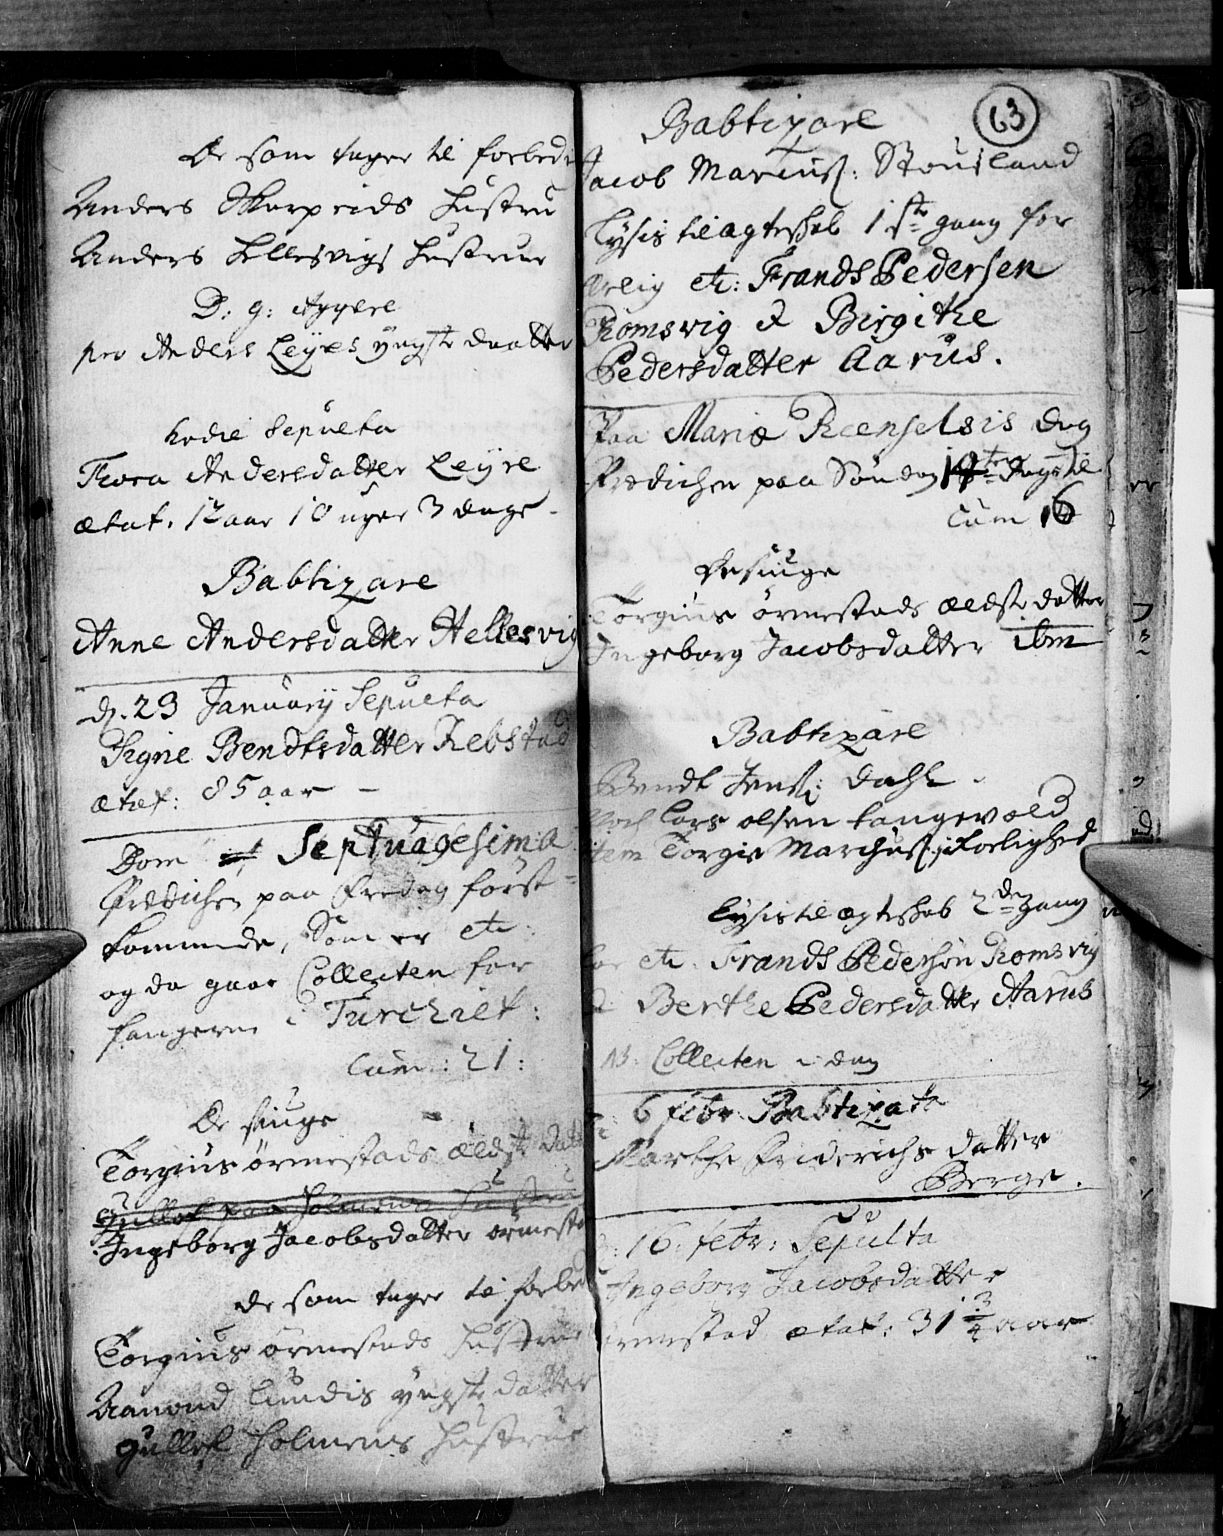 De som tager til forbede
Anders Skarpeids hustru
Anders Hellesvigs hustrue
D: g: Aggere
pro Anders Leyres yngste daatter
hodie Sepulta
Thora Andersdatter Leyre
ætat. 12 aar 10 uger 3 dage
Babtizare
Anne Andersdatter Hellesvig
d. 23 Januarij Sepulta
Signe Bendtsdatter Rebstad
ætat: 85 aar
Dom Septuagesima
Prædichen paa Fredag först
kommende, Som er etc:
og da gaar Collecten for
fangerne i Turchiet:
Cum: 21:
De siuge
Torgius örmestads ældste datt
Gullek paa Holmens hustru
Ingeborg Jacobsdatter örmesta
de som tager til forbe
Torgius örmestads hustrue
Aanond Lundis yngste datter
Gullek Holmens hustrue
63
Babtizare
Jacob Marcuss: Stousland
Lysis til ægteskab 1ste gang for
ærlig etc: Frands Pedersen
Romsvig & Birgithe
Pedersdatter Aarus.
Paa Mariæ Reenselsis dag
Prædichen paa Söndag dags til
Cum 16
de siuge
Torgius örmestads ældste datter
Ingeborg Jacobsdatter ibm
Babtizare
Bendt Jenss: Dahl
Lars olsen Langevold
item Torgie Marchuss:
Lysis til ægteskab 2den gang
for etc. Frands Pedersön Romsvig
& Berthe Pedersdatter Aarus
NB. Collecten i dag
6 febr. Babtizata
Marthe Friderichs datter
Berge.
d: 16. febr: Sepulta
Ingeborg Jacobsdatter
örmestad ætat: 31 3/4 aar